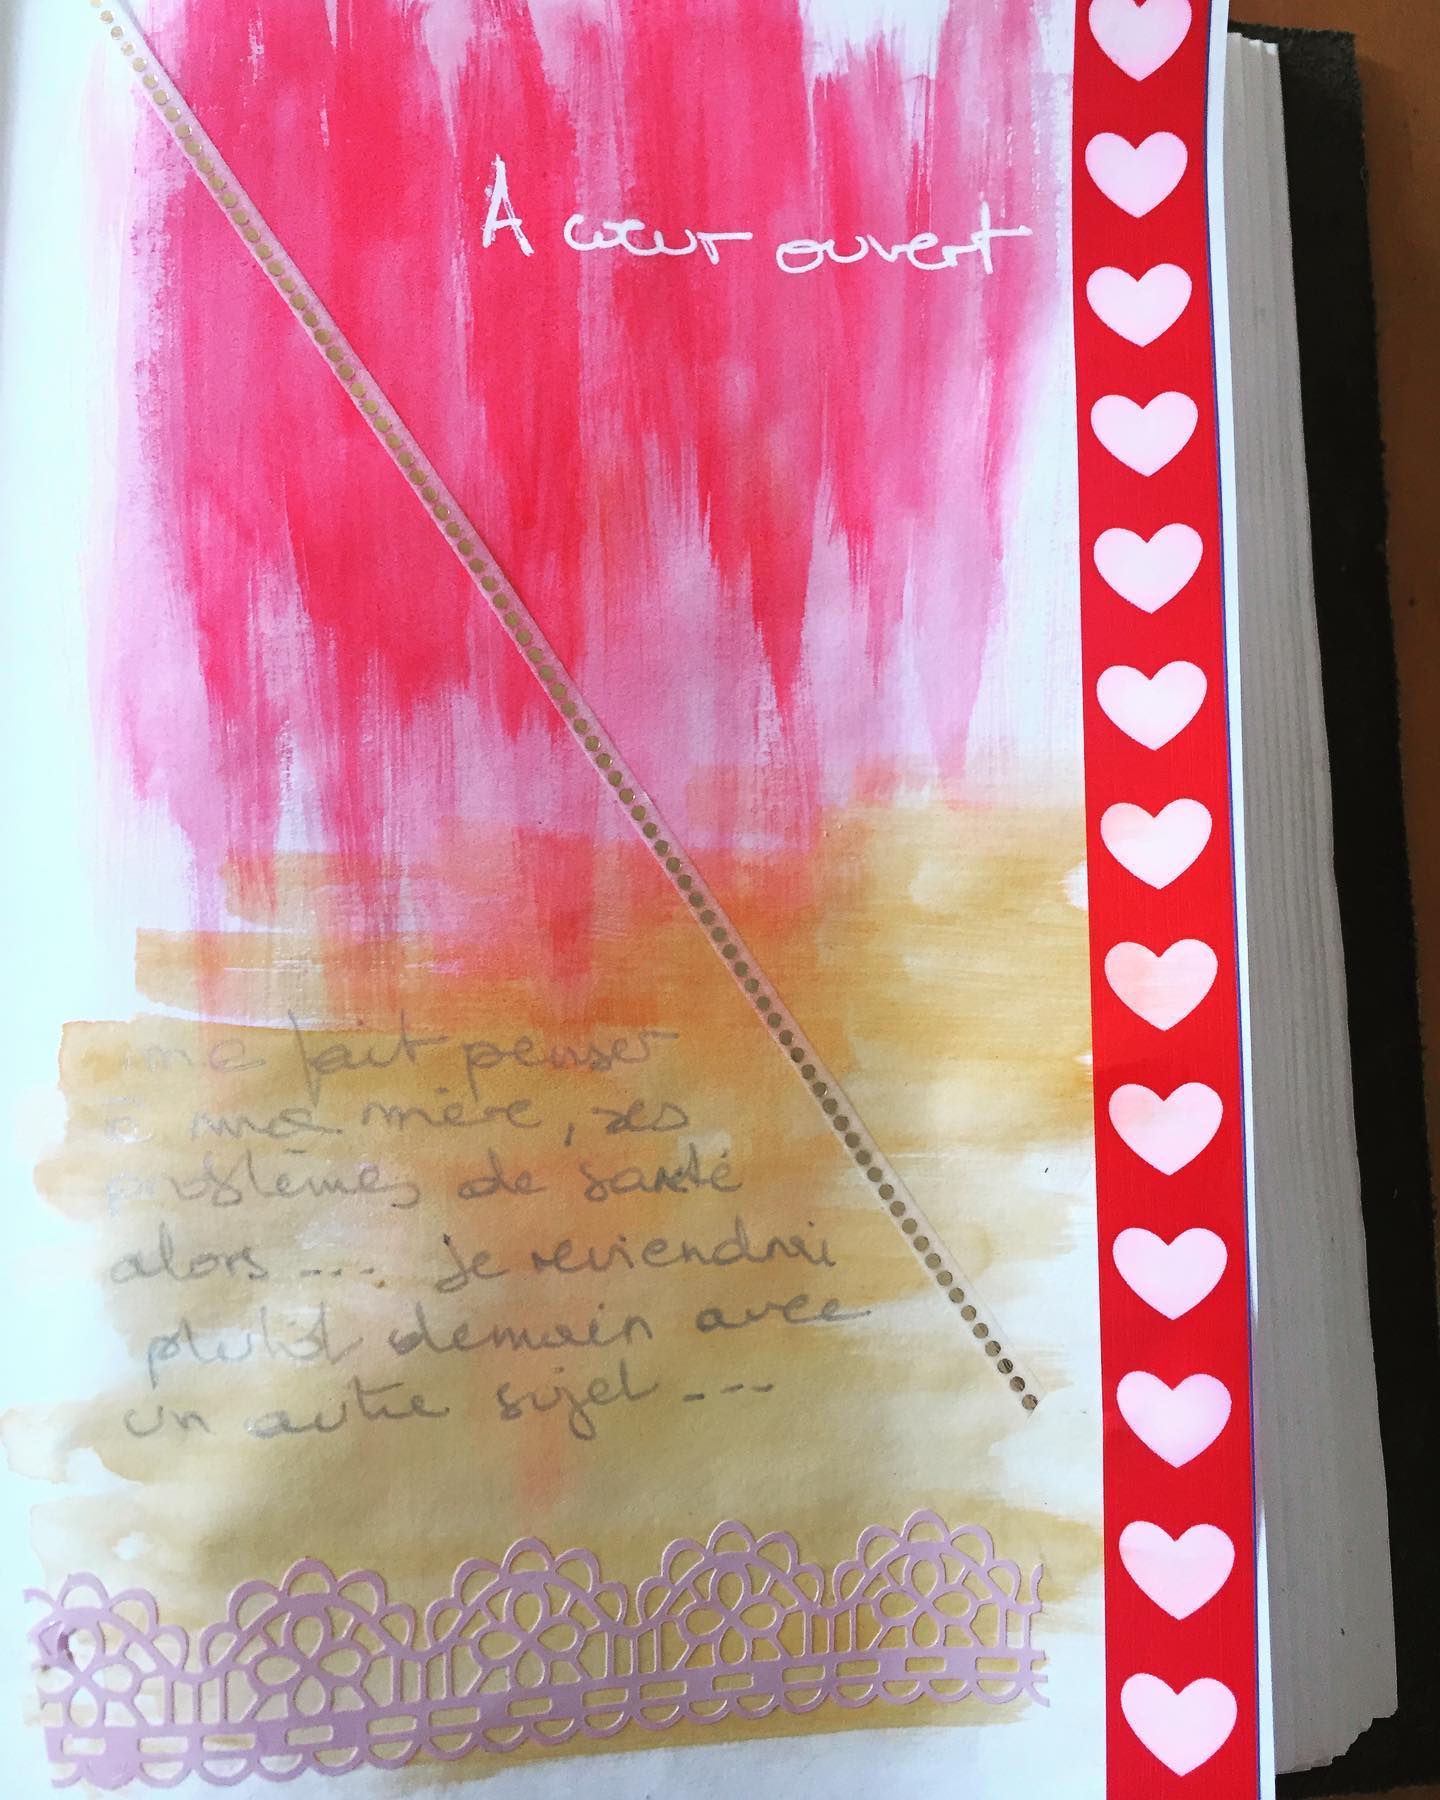 A cœur ouvert
me fait penser
à ma mère, ses
problèmes de santé
alors --- je reviendrai
plutôt demain avec
un autre sujet ---